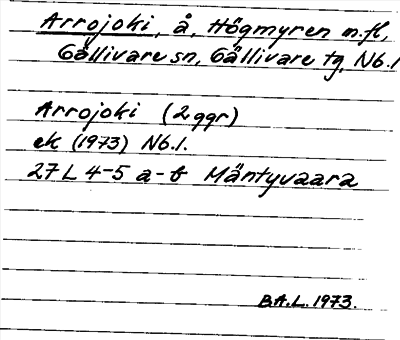 Arrojoki, å, Högmyren m.fl,
Gällivare sn, Gällivare tg, Nb.1
Arrojoki (2 ggr)
ek (1973) Nb.1.
27 L 4-5 a-b Mäntyvaara
B.A.L. 1973.